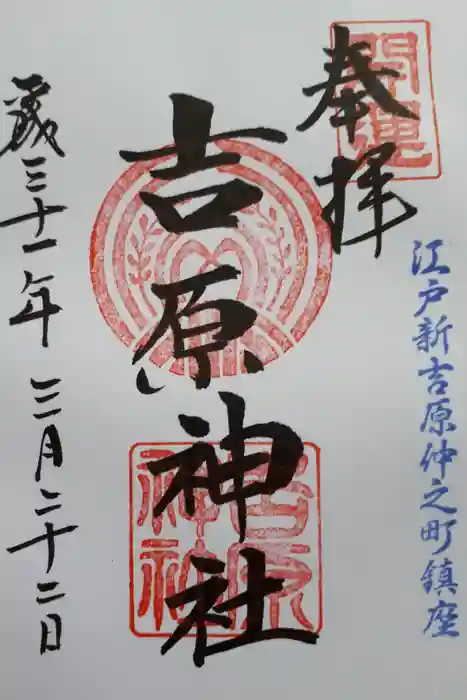 奉拝
開運
江戸新吉原仲之町鎮座
吉原神社
吉原神社
歳三十一年 三月二十二日